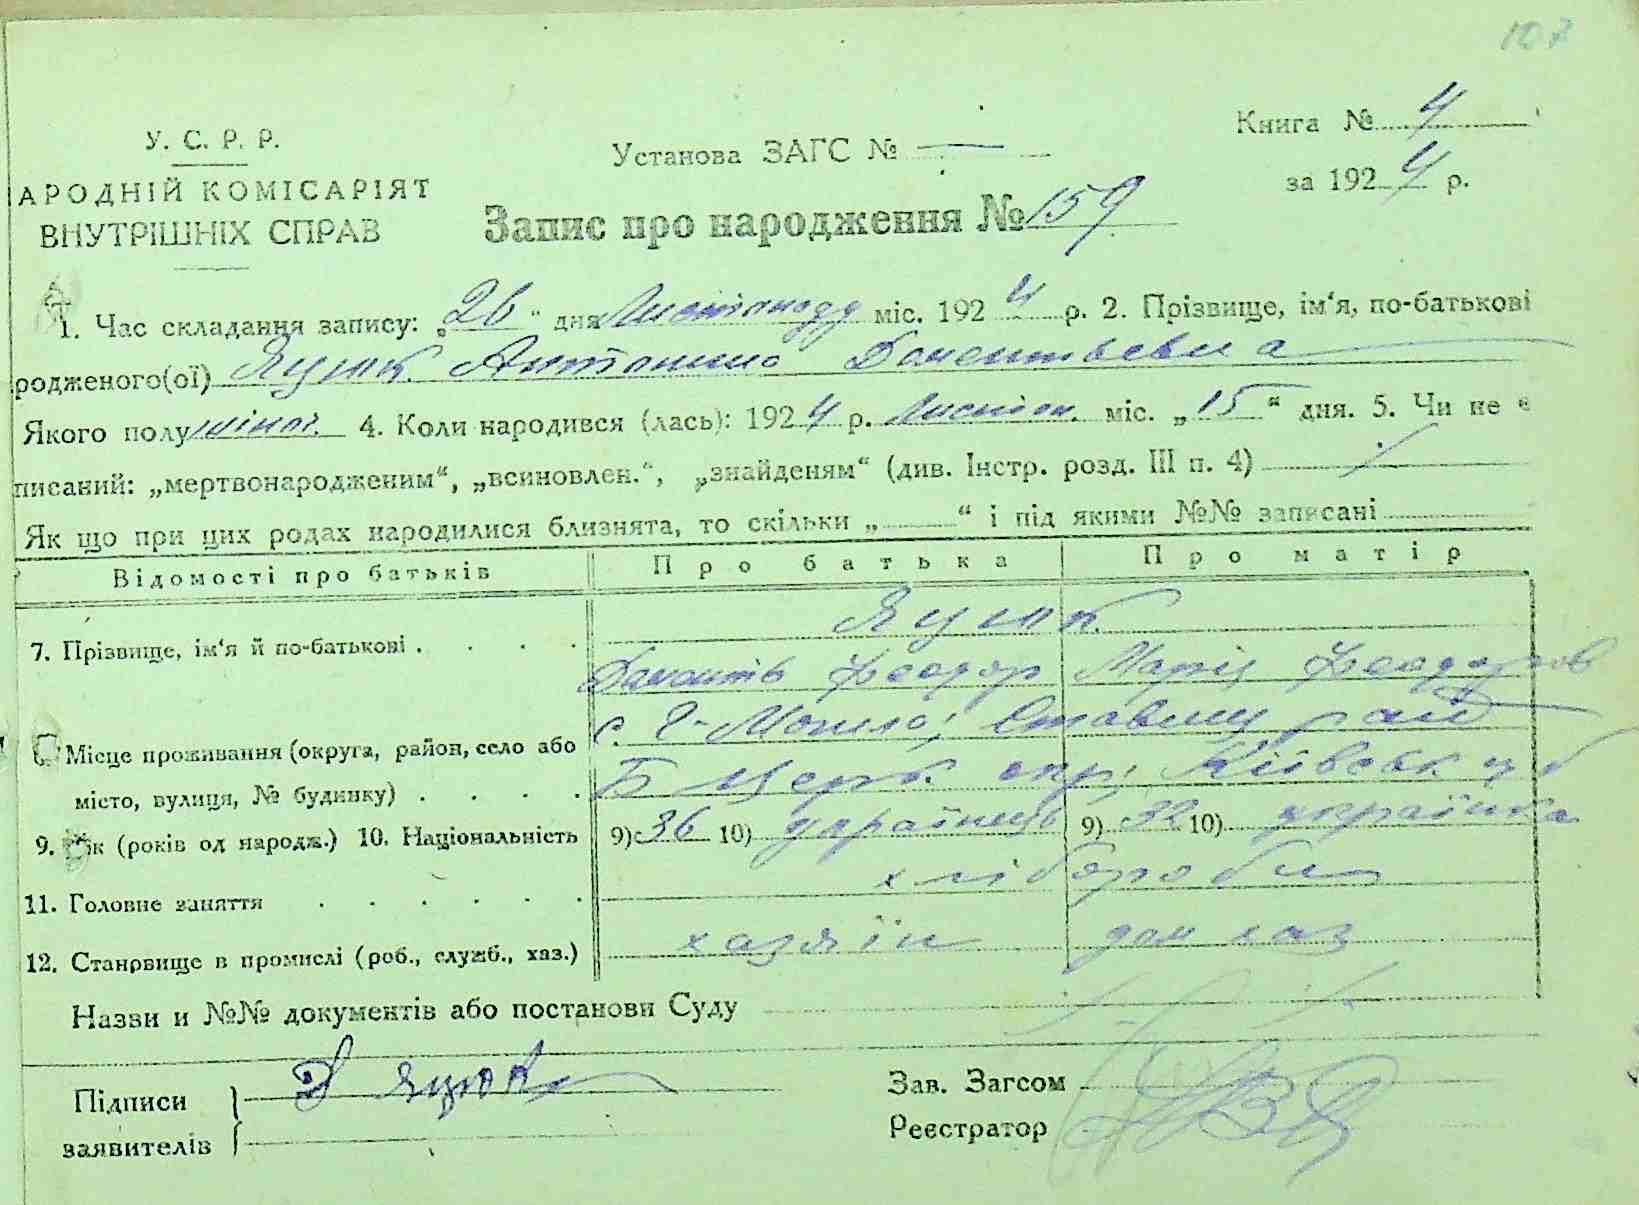 107
У. С. Р. Р.
АРОДНІЙ КОМІСАРІЯТ
ВНУТРІШНІХ СПРАВ
Установа ЗАГС № —
Книга № 4
за 1924 р.
Запис про народження № 159
1. Час складання запису: „26“ дня Листопаду міс. 1924 р. 2. Прізвище, ім‘я, по-батькові
родженого(ої) Яцюк Антонина Доментьевна
Якого полу жіноч. 4. Коли народився (лась): 1924 р. Листоп. міс. „15“ дня. 5. Чи не є
писаний: „мертвонародженим“, „всиновлен.“, „знайденям“ (див. Інстр. розд. III п. 4)
Як що при цих родах народилися близнята, то скільки „ “ і під якими №№ записані
Відомості про батьків Про батька Про матір
7. Прізвище, ім‘я й по-батькові . . . . Яцюк
Даментів Феодор Марія Феодоров
Місце проживання (округа, район, село або с. Могила, Ставищ рай
місто, вулиця, № будинку) . . . . Б Церк. окр, Київськ губ
9. Вік (років од народж.) 10. Національність 9) 36 10) українець 9) 32 10) українка
11. Головне заняття . . . . . . хлібороби
12. Становище в промислі (роб., служб., хаз.) хазяїн дом хаз
Назви и №№ документів або постанови Суду
Підписи
заявителів
Д Яцюк
Зав. Загсом
Реєстратор